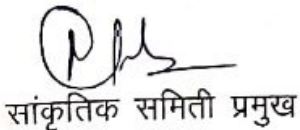 सांकृतिक समिती प्रमुख